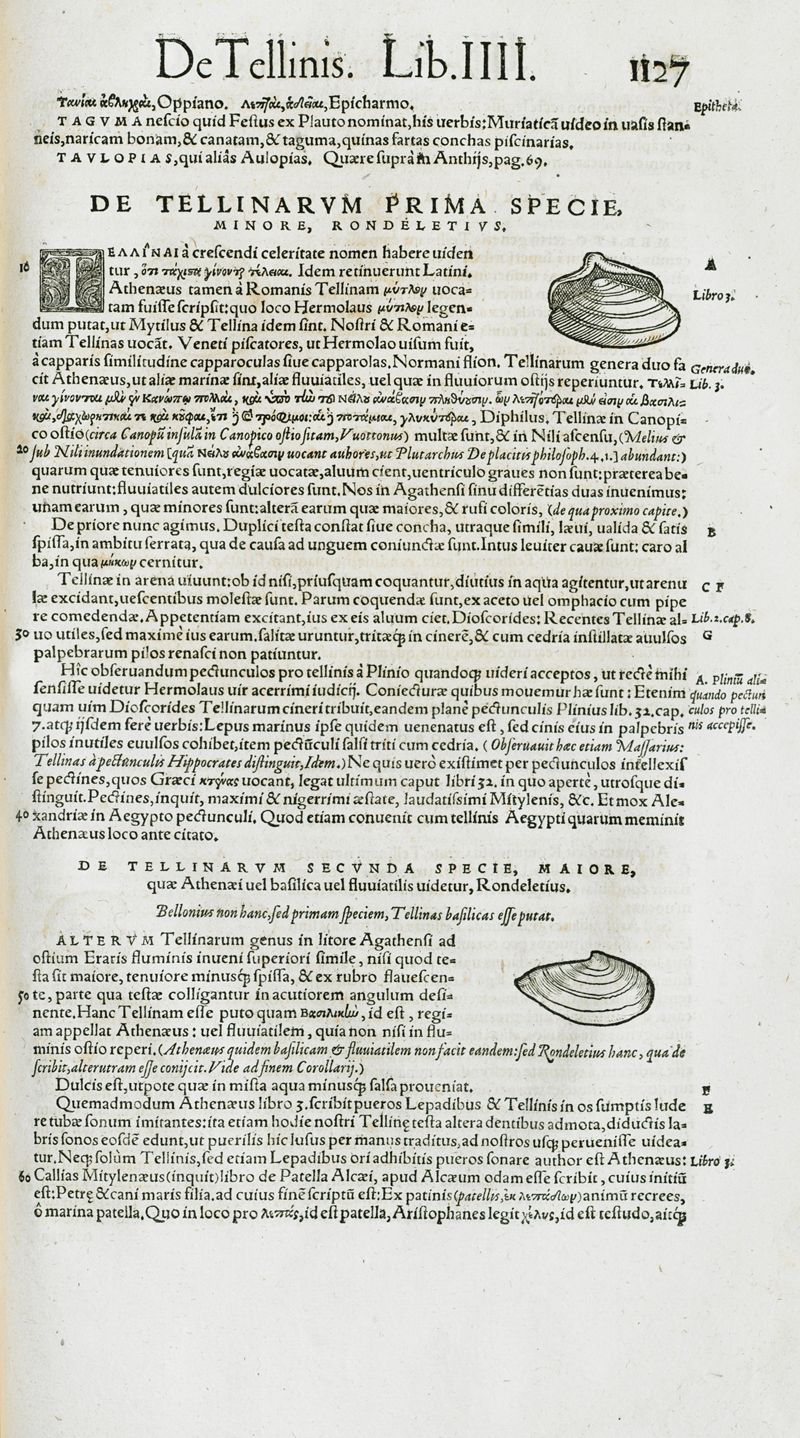 De Tellinis. Lib. IIII. 1127
Ταινίαι ἀβληχραὶ, Oppiano. Λεπταὶ, ἁδεῖαι, Epicharmo. Epitheta.
TAGVMA nescio quid Festus ex Plauto nominat, his uerbis: Muriaticā uideo in uasis stan-
neis, naricam bonam, & canatam, & taguma, quinas fartas conchas piscinarias.
TAVLOPIAS, qui aliâs Aulopias. Quære suprà in Anthijs, pag. 69.
DE TELLINARVM PRIMA SPECIE,
MINORE, RONDELETIVS.
ΤΕΛΛΙΝΑΙ à crescendi celeritate nomen habere uiden
tur, ὅτι τάχιστα γίνονται τέλειαι. Idem retinuerunt Latini.
10
A
Athenæus tamen à Romanis Tellinam μύτλον uoca-
tam fuisse scripsit: quo loco Hermolaus μύτιλον legen-
Libro 3.
dum putat, ut Mytilus & Tellina idem sint. Nostri & Romani e-
tiam Tellinas uocāt. Veneti piscatores, ut Hermolao uisum fuit,
à capparis similitudine capparoculas siue capparolas. Normani flion. Tellinarum genera duo fa Genera duo.
cit Athenæus, ut aliæ marinæ sint, aliæ fluuiatiles, uel quæ in fluuiorum ostijs reperiuntur. Τελλί- Lib. 3.
ναι γίνονται μὲν ἐν Κανώπῳ πολλαὶ, καὶ ὑπὸ τὴν τοῦ Νείλου ἀνάβασιν πληθύουσιν. ὧν λεπτότεραι μέν εἰσιν αἱ βασιλι-
καὶ, διαχωρητικαί τε καὶ κοῦφαι, ἔτι δὲ καὶ τρόφιμοι: αἱ δὲ ποτάμιαι, γλυκύτεραι, Diphilus. Tellinæ in Canopi-
co ostio (circa Canopū insulā in Canopico ostio sitam, Vuottonus) multæ sunt, & in Nili ascensu, (Melius &
20 sub Nili inundationem [quā Νείλου ἀνάβασιν uocant authores, ut Plutarchus De placitis philosoph. 4.1.] abundant:)
quarum quæ tenuiores sunt, regiæ uocatæ, aluum cient, uentriculo graues non sunt: præterea be-
ne nutriunt: fluuiatiles autem dulciores sunt. Nos in Agathensi sinu differētias duas inuenimus:
unam earum, quæ minores sunt: alterā earum quæ maiores, & rufi coloris, (de qua proximo capite.)
De priore nunc agimus. Duplici testa constat siue concha, utraque simili, læui, ualida & satis B
spissa, in ambitu serrata, qua de causa ad unguem coniunctæ sunt. Intus leuiter cauæ sunt: caro al
ba, in qua μήκων cernitur.
Tellinæ in arena uiuunt: ob id nisi, priusquam coquantur, diutius in aqua agitentur, ut arenu C F
læ excidant, uescentibus molestæ sunt. Parum coquendæ sunt, ex aceto uel omphacio cum pipe
re comedendæ. Appetentiam excitant, ius ex eis aluum ciet. Dioscorides: Recentes Tellinæ al- Lib. 2. cap. 8.
30 uo utiles, sed maximè ius earum. salitæ uruntur, tritæq́; in cinerē, & cum cedria instillatæ auulsos G
palpebrarum pilos renasci non patiuntur.
Hîc obseruandum pectunculos pro tellinis à Plinio quandoq; uideri acceptos, ut rectè mihi A. Pliniū ali-
sensisse uidetur Hermolaus uir acerrimi iudicij. Coniecturæ quibus mouemur hæ sunt: Etenim quando pectun
quam uim Dioscorides Tellinarum cineri tribuit, eandem planè pectunculis Plinius lib. 32. cap. culos pro telli-
7. atq; ijsdem ferè uerbis: Lepus marinus ipse quidem uenenatus est, sed cinis eius in palpebris nis accepisse.
pilos inutiles euulsos cohibet, item pectūculi salsi triti cum cedria. (Obseruauit hæc etiam Massarius:
Tellinas à pectunculis Hippocrates distinguit, Idem.) Ne quis uerò existimet per pectunculos intellexis
se pectines, quos Græci κτένας uocant, legat ultimum caput libri 32. in quo apertè, utrosque di-
stinguit. Pectines, inquit, maximi & nigerrimi æstate, laudatissimi Mitylenis, &c. Et mox Ale-
40 xandriæ in Aegypto pectunculi. Quod etiam conuenit cum tellinis Aegypti quarum meminit
Athenæus loco ante citato.
DE TELLINARVM SECVNDA SPECIE, MAIORE,
quæ Athenæi uel basilica uel fluuiatilis uidetur, Rondeletius.
Bellonius non hanc, sed primam speciem, Tellinas basilicas esse putat.
ALTERVM Tellinarum genus in litore Agathensi ad
ostium Eraris fluminis inueni superiori simile, nisi quod te-
sta sit maiore, tenuiore minusq́; spissa, & ex rubro flauescen-
50 te, parte qua testæ colligantur in acutiorem angulum desi-
nente. Hanc Tellinam esse puto quam βασιλικὴν, id est, regi-
am appellat Athenæus: uel fluuiatilem, quia non nisi in flu-
minis ostio reperi. (Athenæus quidem basilicam & fluuiatilem non facit eandem: sed Rondeletius hanc, qua de
scribit, alterutram esse conijcit. Vide ad finem Corollarij.)
Dulcis est, utpote quæ in mista aqua minusq́; salsa proueniat. F
Quemadmodum Athenæus libro 3. scribit pueros Lepadibus & Tellinis in os sumptis lude E
re tubæ sonum imitantes: ita etiam hodie nostri Tellinę testa altera dentibus admota, diductis la-
bris sonos eosdē edunt, ut puerilis hic lusus per manus traditus, ad nostros usq; peruenisse uidea-
tur. Neq; solùm Tellinis, sed etiam Lepadibus ori adhibitis pueros sonare author est Athenæus: Libro 3.
60 Callias Mitylenæus (inquit) libro de Patella Alcæi, apud Alcæum odam esse scribit, cuius initiū
est: Petrę & cani maris filia. ad cuius finē scriptū est: Ex patinis (patellis, ἐκ λεπάδων) animū recrees,
ô marina patella. Quo in loco pro λεπάς, id est patella, Aristophanes legit χέλυς, id est testudo, aitq́;